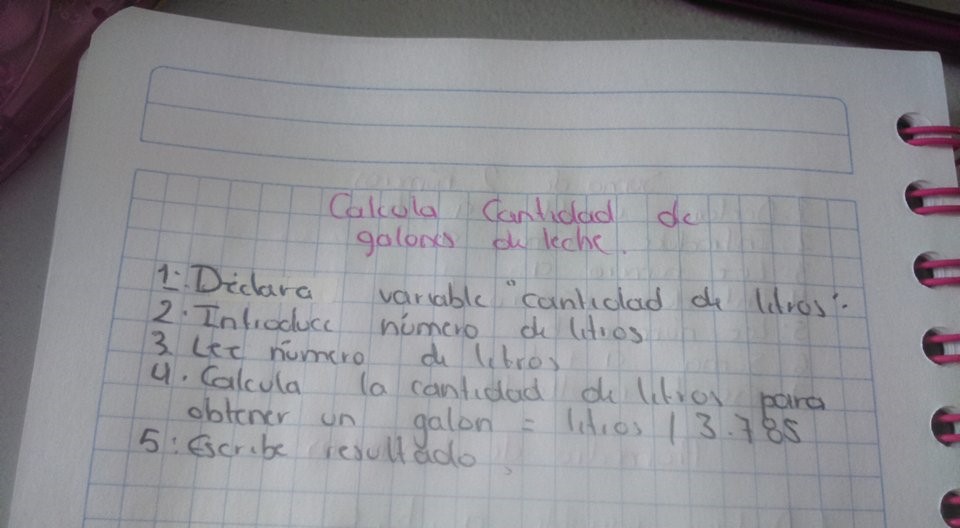 Calcula Cantidad de
galones de leche.
1. Declara variable "cantidad de litros".
2. Introduce número de litros
3. Lee número de litros
4. Calcula la cantidad de litros para
obtener un galon = litros / 3.785
5. Escribe resultado.